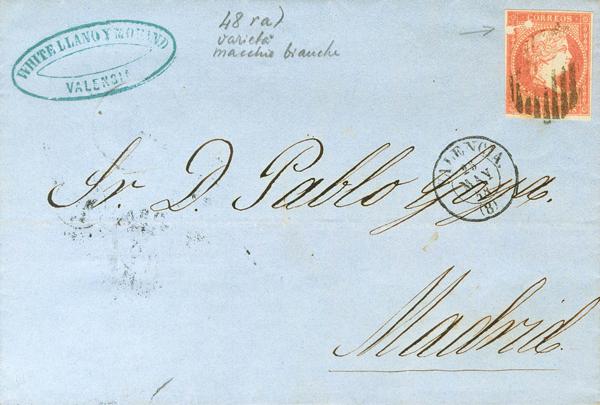 WHITE, LLANO Y MORAND
VALENCIA
48 ra)
varietà
macchie bianche
CORREOS
VALENCIA
MAY
(8)
Sr. D. Pablo
Madrid.